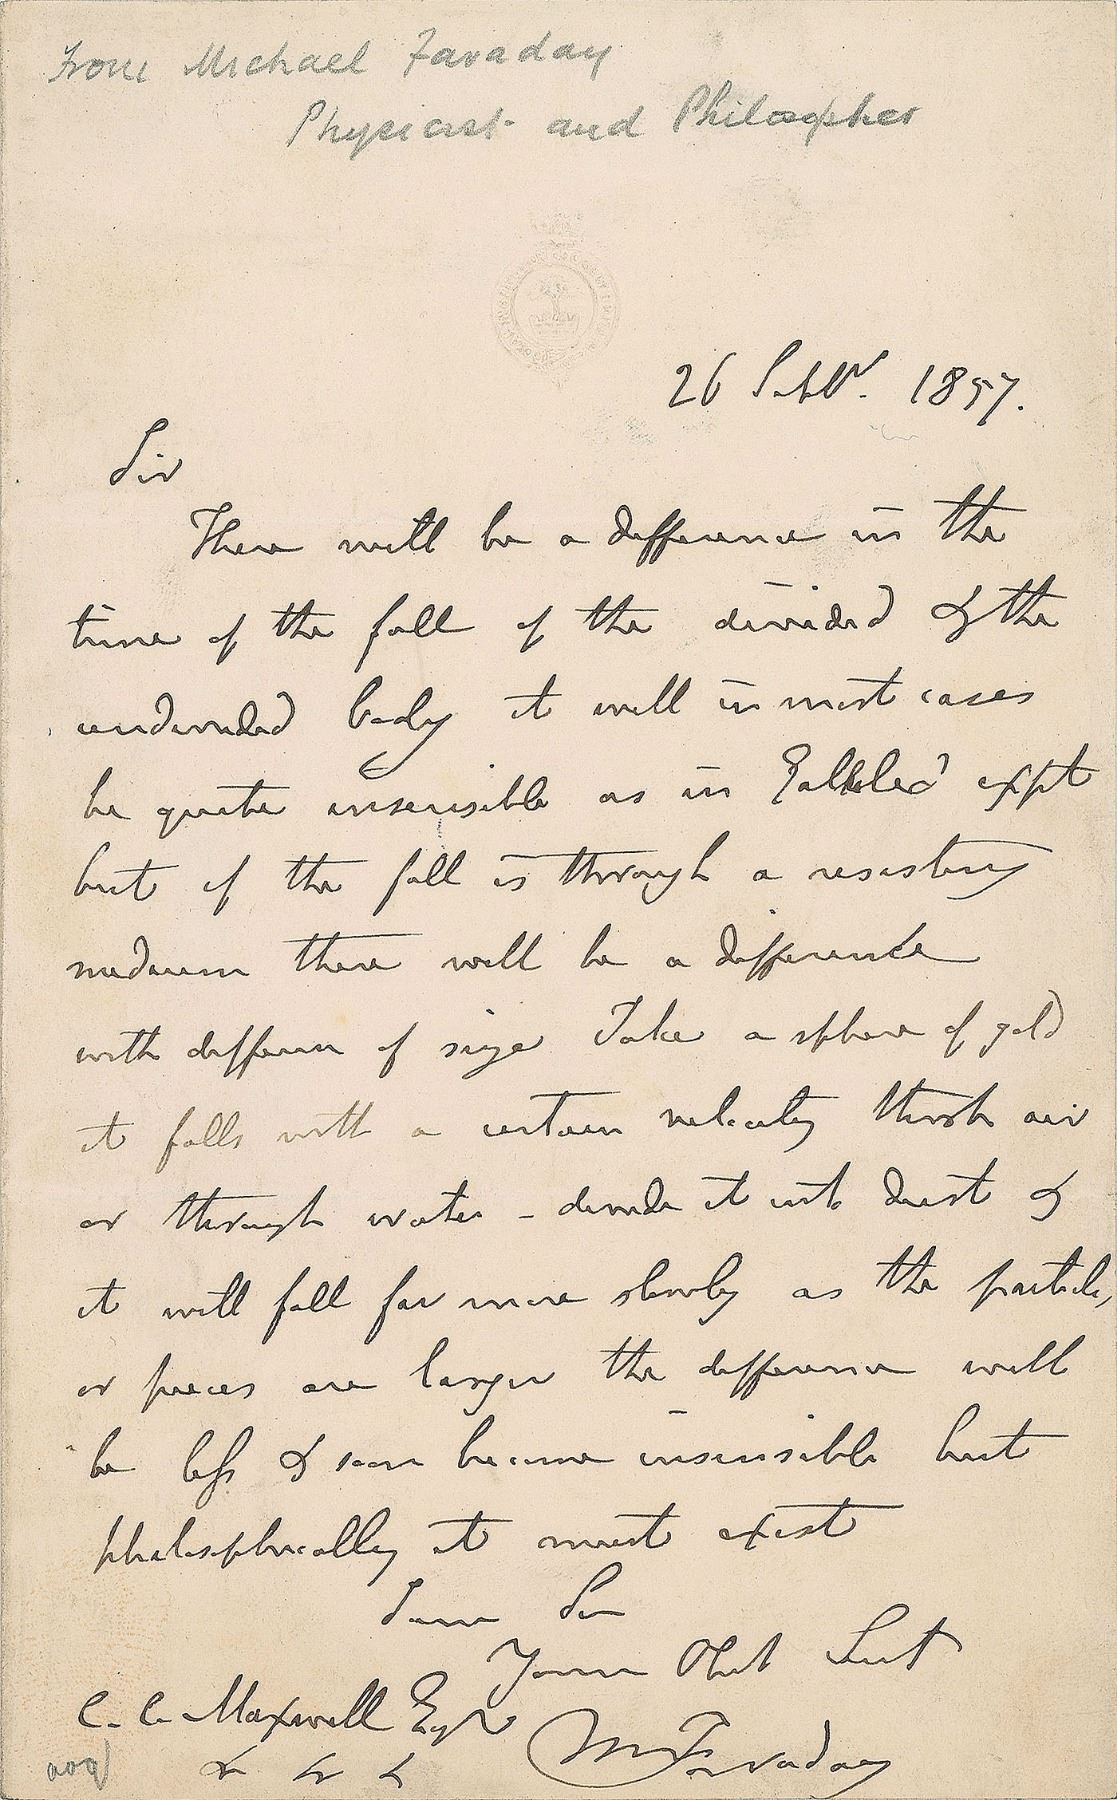 From Michael Faraday
Physicist and Philosopher
26 Septr. 1857.
Sir
There will be a difference in the
time of the fall of the divided & the
undivided body it will in most cases
be quite insensible as in Galileo's expt
but if the fall is through a resisting
medium there will be a difference
with difference of size Take a sphere of gold
it falls with a certain velocity throh air
or through water - divide it into dust &
it will fall far more slowly as the particles
or pieces are larger the difference will
be less & soon become insensible but
philosophically it must exist
I am Sir
Your Obet Servt
C. C. Maxwell Esqr
M Faraday
& & &